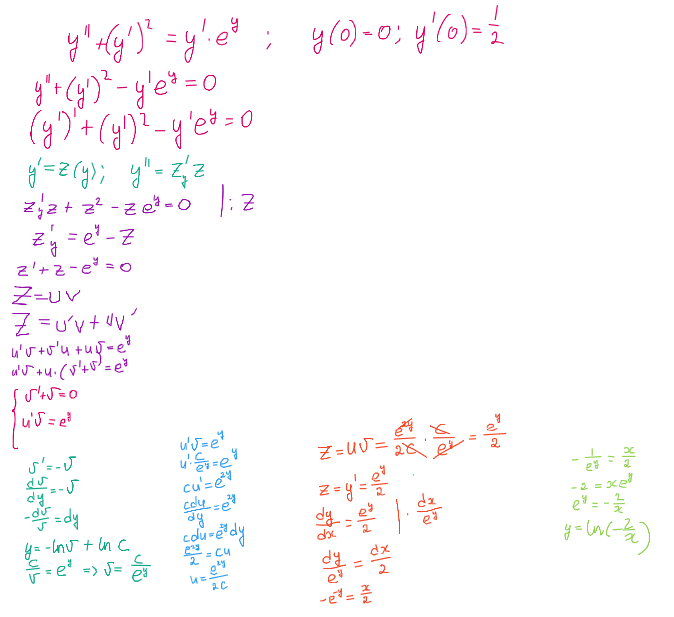 y'' + (y')² = y' · e^y ; y(0) = 0; y'(0) = 1/2
y'' + (y')² - y'e^y = 0
(y')' + (y')² - y'e^y = 0
y' = z(y); y'' = z'_y z
z'_y z + z² - z e^y = 0 | : z
z'_y = e^y - z
z' + z - e^y = 0
z = uv
z = u'v + uv'
u'v + v'u + uv = e^y
u'v + u · (v' + v) = e^y
{ v' + v = 0
u'v = e^y
v' = -v
dv/dy = -v
-dv/v = dy
y = -ln v + ln C
c/v = e^y => v = c/e^y
u'v = e^y
u' · c/e^y = e^y
cu' = e^2y
cdu/dy = e^2y
cdu = e^2y dy
e^2y/2 = cu
u = e^2y/2c
z = uv = e^2y/2c · c/e^y = e^y/2
z = y' = e^y/2
dy/dx = e^y/2 | · dx/e^y
dy/e^y = dx/2
-e^-y = x/2
-1/e^y = x/2
-2 = xe^y
e^y = -2/x
y = ln(-2/x)